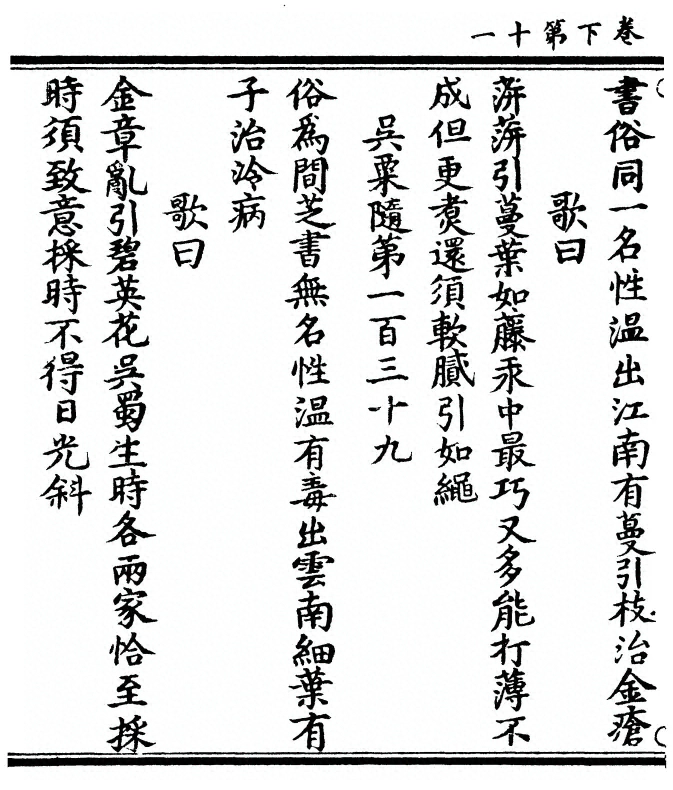 卷下第十一
書俗同一名性温出江南有蔓引枝治金瘡
歌曰
蓱蓱引蔓葉如藤汞中最巧又多能打薄不
成但更煑還須軟膩引如繩
吳粟隨第一百三十九
俗爲間芝書無名性温有毒出雲南細葉有
子治冷病
歌曰
金章亂引碧英花吳蜀生時各兩家恰至採
時須致意採時不得日光斜